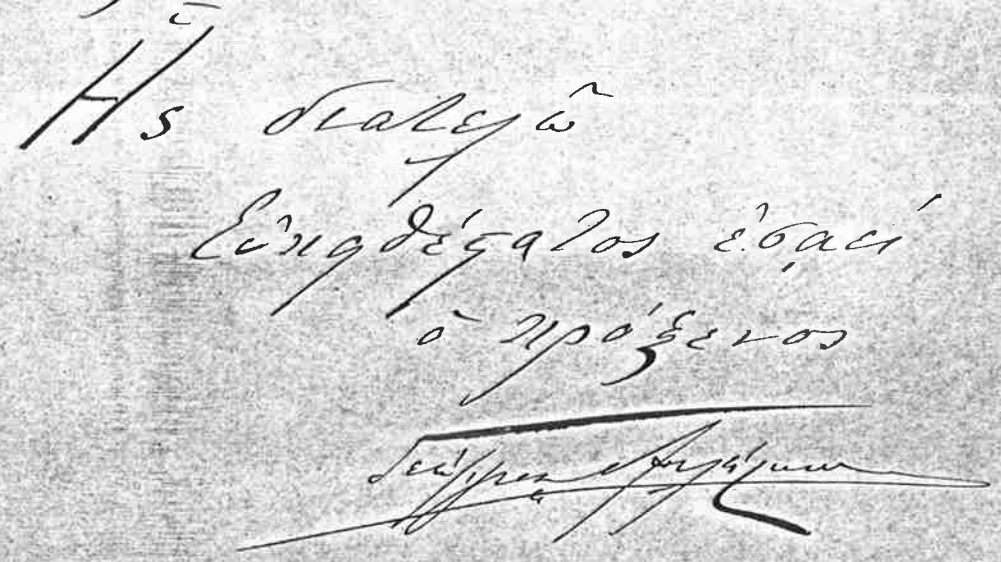 Ἧς διατελῶ
Εὐπειθέστατος ἐσαεί
ὁ πρόξενος